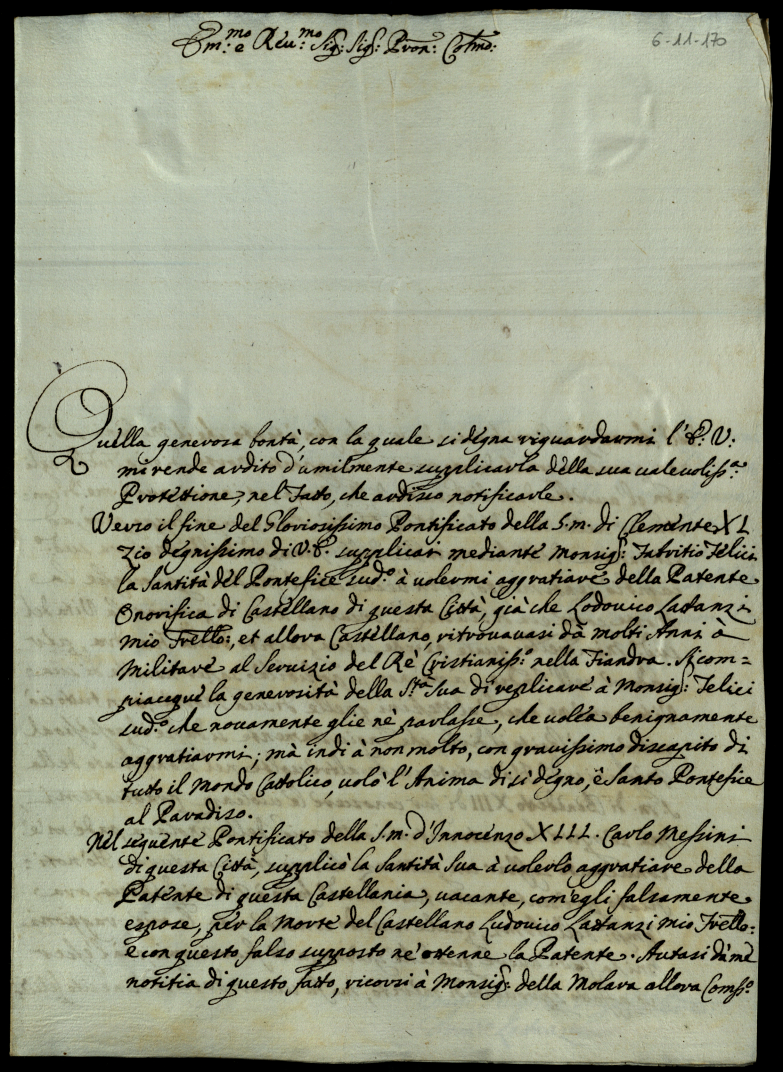 Em.mo e Reu.mo Sig: Sig: Pron: Colmo:
6-11-170
Quella generosa bontà, con la quale si degna riguardarmi l'E: V:
mi rende ardito d'umilmente supplicarla della sua ualeuoliss.a
Protettione, nel Fatto, che ardisco notificarle.
Verso il fine del Gloriosissimo Pontificato della S. m. di Clemente XI
Zio degnissimo di V. E. supplicai mediante Monsig: Fabritio Felici
la Santità del Pontefice sud.o à volermi aggratiare della Patente
Onorifica di Castellano di questa Città, già che Lodovico Lattanzi
mio Frello:, et allora Castellano, ritrouauasi dà molti Anni à
Militare al Seruizio del Rè Cristianiss.o nella Fiandra. Si com=
piacque la generosità della S.tà Sua di replicare à Monsig: Felici
sud.o che nouamente glie nè parlasse, che uolea benignamente
aggratiarmi; mà indi à non molto, con grauissimo discapito di
tutto il Mondo Cattolico, uolò l'Anima di sì degno, è Santo Pontefice
al Paradiso.
Nel seguente Pontificato della S. m. d'Innocenzo XIII. Carlo Messini
di questa Città, supplicò la Santità Sua à uolerlo aggratiare della
Patente di questa Castellania, uacante, com'egli falsamente
espose, per la Morte del Castellano Ludouico Lattanzi mio Frello:
è con questo falso supposto ne ottenne la Patente. Autasi dà me
notitia di questo fatto, ricorsi à Monsig: della Molara allora Comss.o